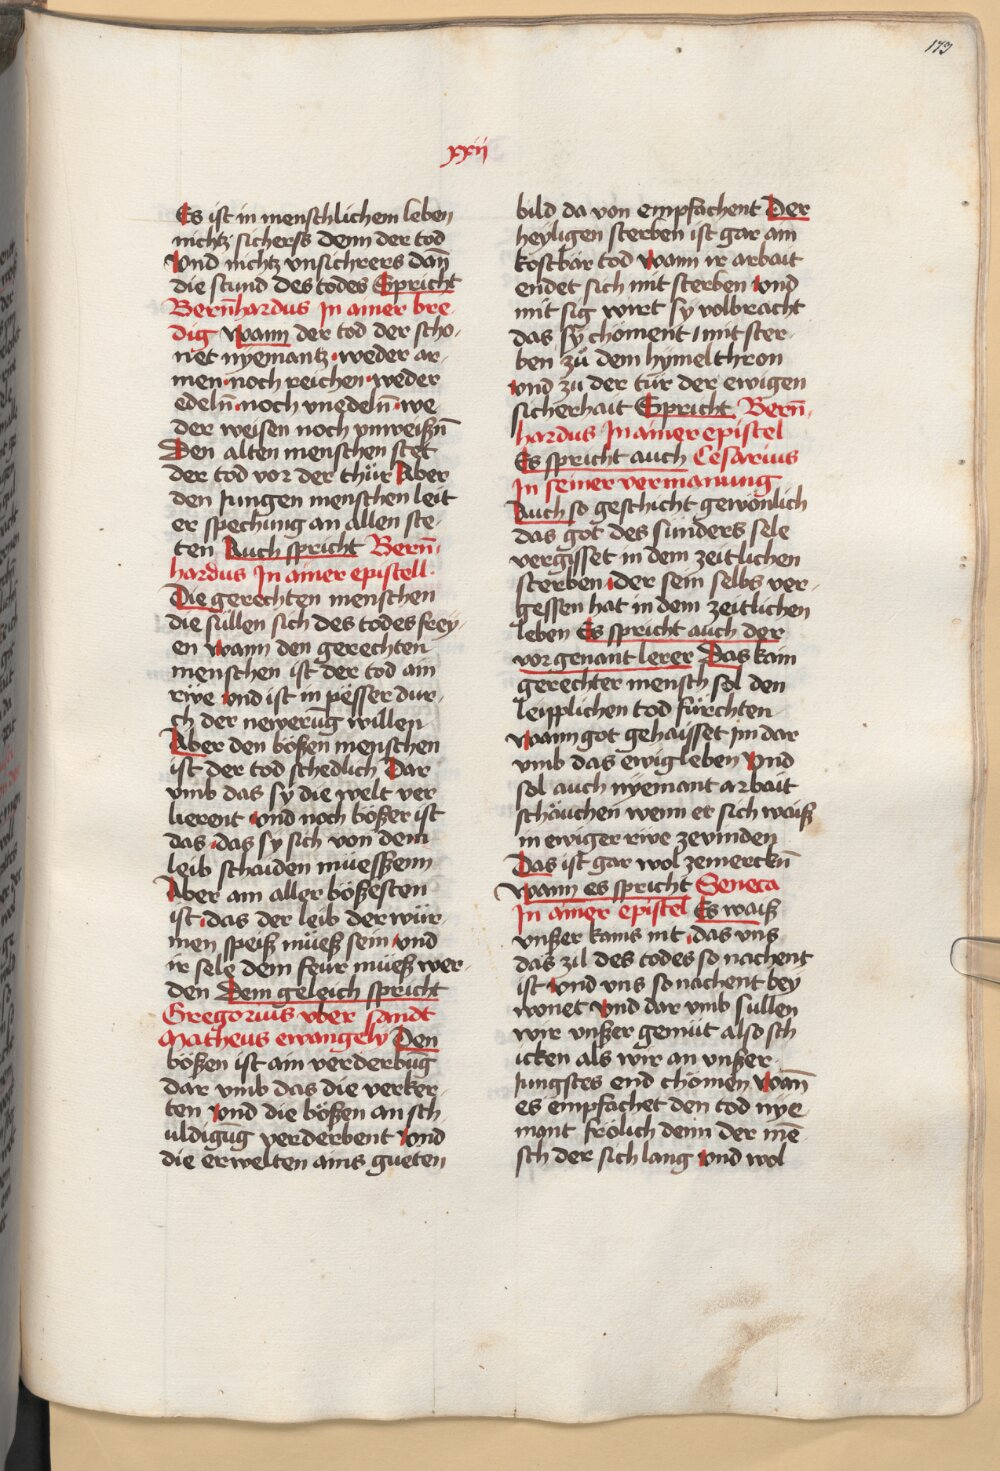 173
xxij
Es ist in menschlichem leben
nichtz sichers denn der tod
Vnd nichtz vnsichrers dañ
die stund des todes Spricht
Bern̄hardus In ainer bre-
dig Wann der tod der scho-
net nyemantz weder ar-
men noch reichen weder
edeln̄ noch vnedeln̄ we-
der weisen noch vnweißn̄
Den alten menschen stet
der tod vor der thür Aber
den Jungen menschen leit
er spechung an allen ste-
ten Auch spricht Bern̄-
hardus In ainer epistell
Die gerechten menschen
die süllen sich des todes frey-
en wann den gerechten
menschen ist der tod ain
rwe vnd ist in pesser dur-
ch der newerūg willen
Aber den bößen menschen
ist der tod schedlich Dar
vmb das sy die welt ver
lierent vnd noch bößer ist
das das sy sich von dem
leib schaiden müeßenn
Aber am aller bößesten
ist das der leib der wür
men speiß müeß sein vnd
ir sele dem feur müeß wer-
den Dem geleich spricht
Gregorius vber sandt
Matheus ewangely Den
bößen ist ain verderbūg
dar vmb das die verker-
ten vnd die bößen an sch
uldigūg verderbent vnd
die erwelten ains gueten
bild da von empfachent Der
heyligen sterben ist gar am
kostbar tod wann ir arbait
endet sich mit sterben vnd
mit sig wirt sy volbracht
das sy chöment mit ster-
ben zů dem hymelthron
vnd zu der tür der ewigen
sicherhait Spricht Bern̄-
hardus In ainer epistel
Es spricht auch Cesarius
In seiner vermanung
Auch so geschicht gewönlich
das got des sünders sele
vergisset in dem zeitlichen
sterben der sein selbs ver-
gessen hat in dem zeitlichen
leben Es spricht auch der
vor genant lerer Das kain
gerechter mensch sol den
leipplichen tod fürchten
wann got gehaisset im dar
vmb das ewig leben vnd
sol auch nyemant arbait
schäuchen wenn er sich waiß
in ewiger rwe zevinden
Das ist gar wol zemerckn̄
wann es spricht Seneca
In ainer epistel Es waiß
vnßer kains nit das vns
das zil des todes so nachent
ist vnd vns so nachent bey
wonet vnd dar vmb süllen
wir vnßer gemüt also sch
icken als wir an vnßer
Jungstes end chömen wañ
es empfachet den tod nye
mant frölich denn der mē
sch der sich lang vnd wol